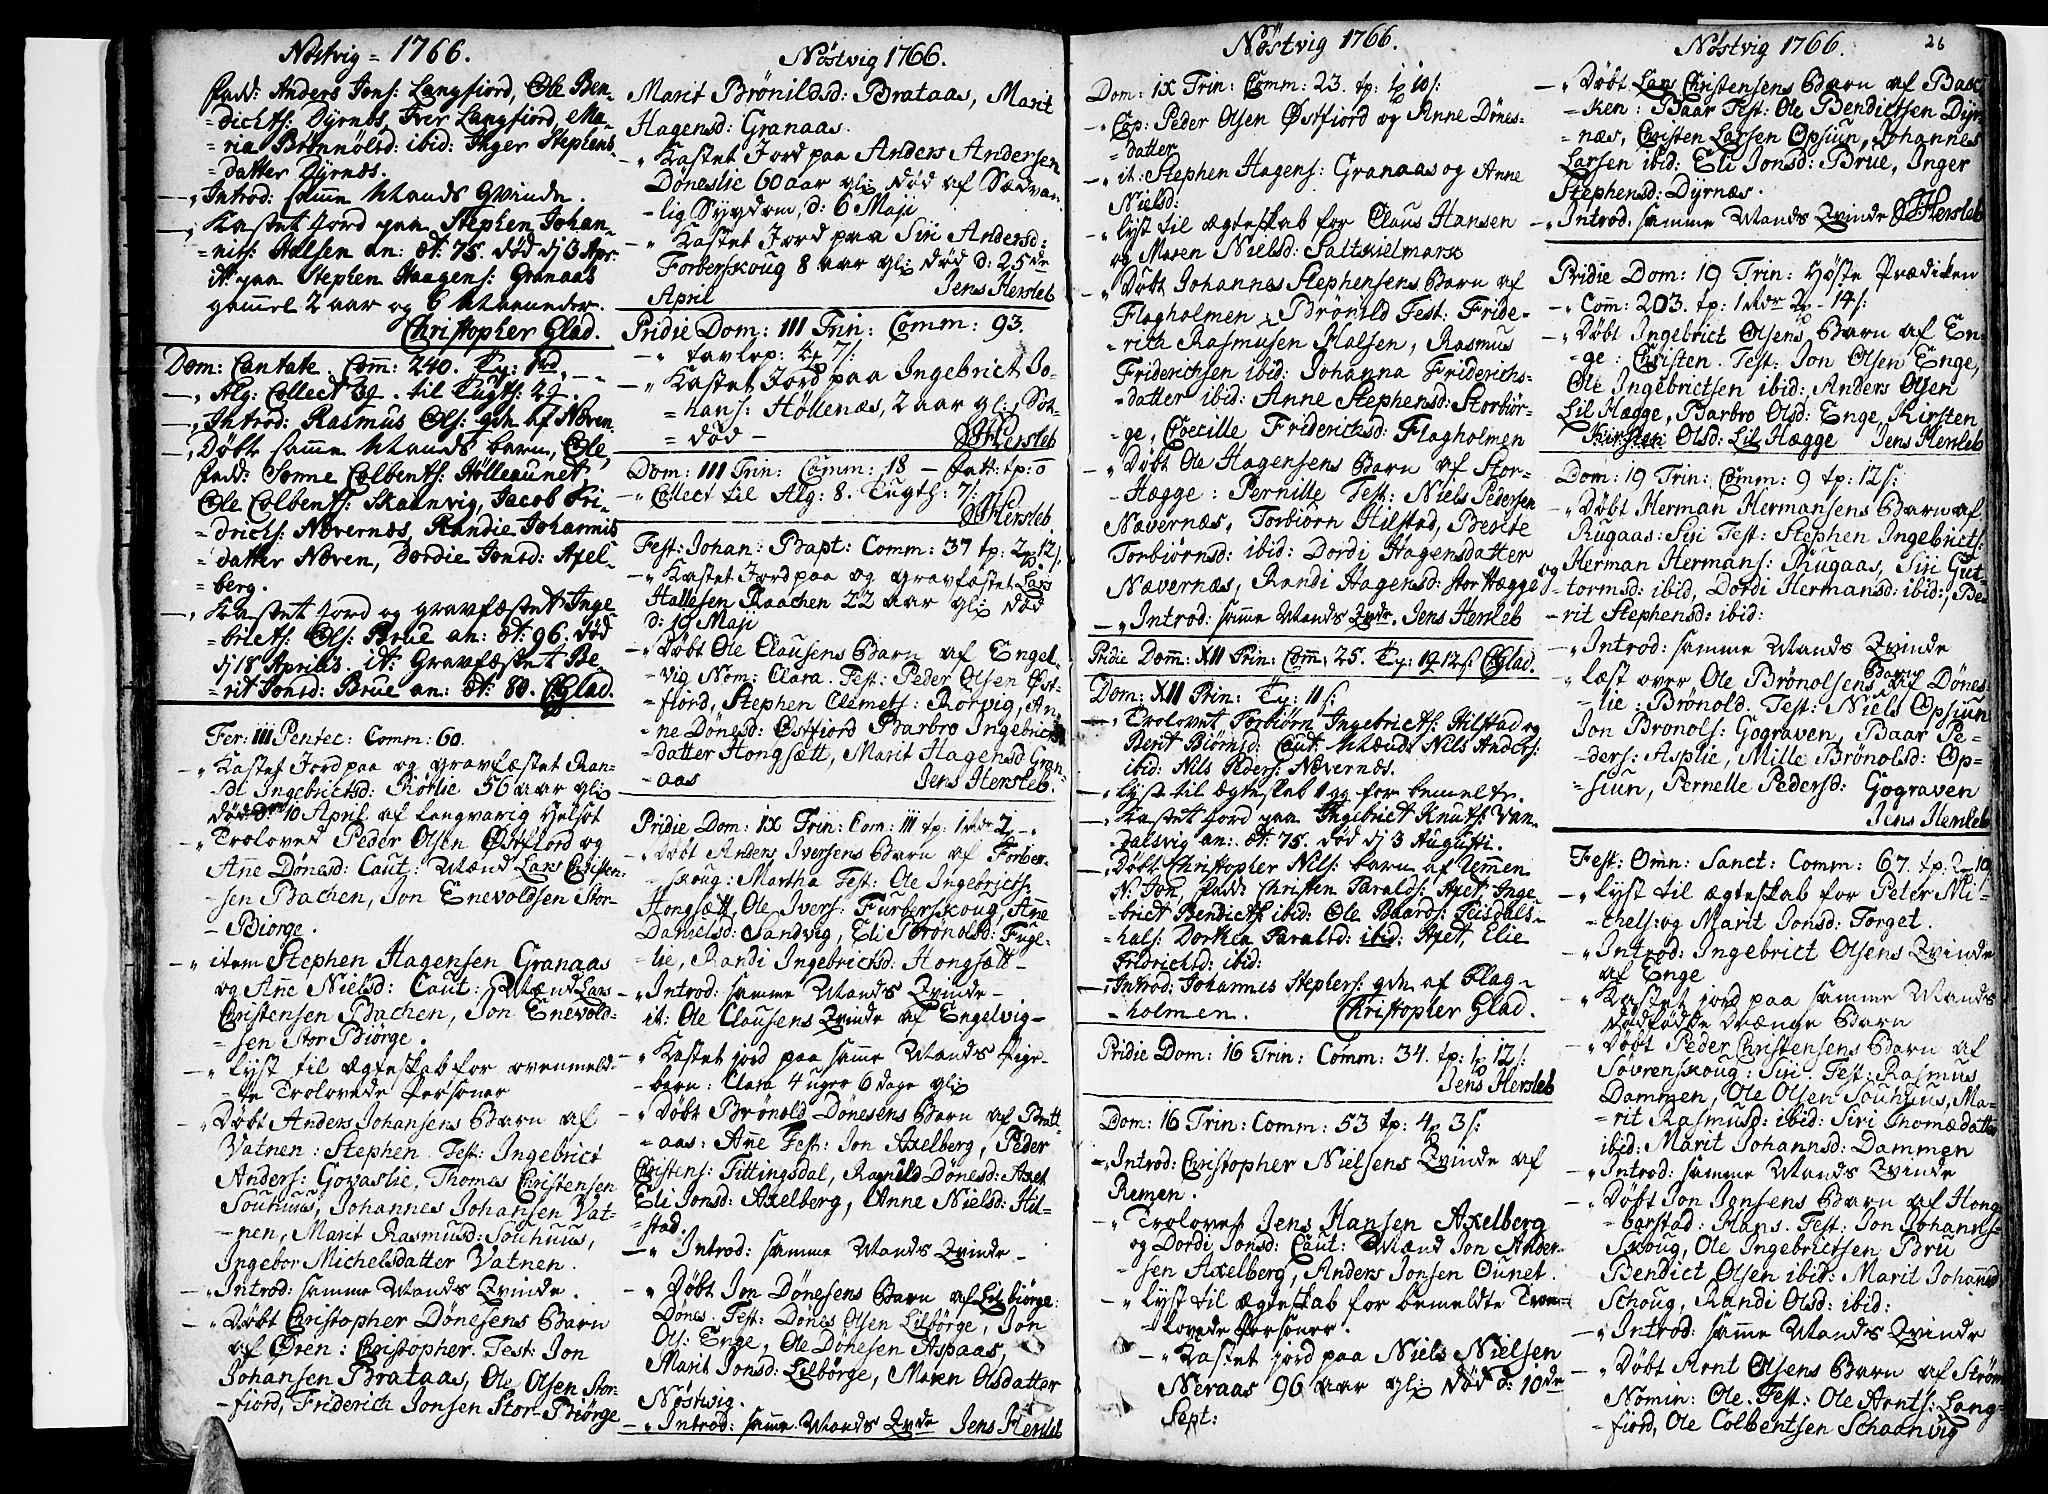 Nöstvig = 1766.
fadd: Anders Jons: Langfiord, Ole Ben-
=dichts: Dyrnes, Iver Langfiord, Ma-
=ria Brönnölsd: ibid: Inger Stephens
=datter Dyrnes.
—, Introd: samme Mands Qvinde.
—, Kastet Jord paa Stephen Johan-
=nis: Halsen an: æt: 75. død d: 3 Apr:
it: paa Stephen Haagens: Granaas
gammel 2 aar og 6 Maaneder.
Christopher Glad.
Dom: Cantate. Com: 240.
—, Alg: Collect 39. til Tugts: 29.
—, Introd: Rasmus Ols: qvh. af Noven
—, Døbt samme Mands barn, Ole,
fadd: Sonne Colbents: Hölleaunet,
Ole Colbents: Skaanvig, Jacob Fri-
=drichs: Nevernes, Randie Johannis
=datter Noven, Dordie Jonsd: Axel-
=berg.
—, Kastet Jord og gravfæstet Inge-
=bricts: Ols: Brue an: æt: 96. død
d: 18 Aprilis. it: Gravfæstet Be-
=rit Jonsd: Brue an: æt: 80. CGlad.
Fer: III Pentec: Comm: 60.
—" Kastet Jord paa og gravfæstet Ran-
di Ingebrictsd: Rötlie 56 aar gl:
død d: 10 April af langvarig Helsot
—" Trolovet Peder Olsen Östfiord og
Anne Dönesd: Caut: Mænd Lars Christen-
-sen Bachen, Jon Enevoldsen Stor-
- Biörge.
—" item Stephen Hagensen Granaas
og Ane Nielsd: Caut: Mænd Lars
Christensen Bachen, Jon Enevold-
-sen Stor Biörge.
—" lyst til Ægteskab for ovenmeld-
-te Trolovede Personer
—" Döbt Anders Johansens Barn af
Vatnen: Stephen. Test: Ingebrict
Anders: Govaslie, Thomes Christensen
Souhuus, Johannes Johansen Vat-
-nen, Marit Rasmusd: Souhuus,
Ingebor Michelsdatter Vatnen.
—" Introd: samme Mands Qvinde.
—" Döbt Christopher Dönesens Barn
af Øren: Christopher. Test: Jon
Johansen Brataas, Ole Olsen Stor-
-fiord, Friderich Jonsen Stor-Biörge
Nöstvig 1766.
Marit Brönildsd: Brataas, Marit
Hagensd: Granaas.
—" Kastet Jord paa Anders Andersen
Döneslie 60 aar gl: død af Sædvan-
-lig Sygdom, d: 6 Maji
—" Kastet Jord paa Siri Andersd:
Forberskoug 8 aar gl: død d: 25de
April Jens Hersleb
Pridie Dom: III Trin: Comm: 93.
—" tavlep: 7 s:
—" Kastet Jord paa Ingebrict Jo-
=hans: Höllenæs, 2 aar gl: Sot-
=død — JHersleb
Dom: III Trin: Comm: 18 — Fatt: tp: 0
—" Collect til Alg: 8. Tugth: 7 s:
JHersleb
Fest: Johan: Bapt: Comm: 37 tp: 2 12 s:
—" Kastet Jord paa og gravfæstet Lars
Hallesen Raachen 22 aar gl: død
d: 19 Maji
—" Döbt Ole Clausens Barn af Engel-
-vig Nom: Clara. Test: Peder Olsen Øst-
-fiord, Stephen Clemets: Rörvig, An-
-ne Dönesd: Østfiord Barbro Ingebricts
-datter Hongsætt, Marit Hagensd Gran-
-aas Jens Hersleb.
Pridie Dom: IX Trin: Com: III tp: 1 Rdr 2 —.
—" Döbt Anders Iversens Barn af Forber-
-skoug: Martha Test: Ole Ingebricts:
Hongsætt, Ole Ivers: Furberskoug, Anne
Danielsd: Sandvig, Eli Brönolsd: Fugl-
-lie, Randi Ingebrictsd: Hongsætt —
—" Introd: samme Mands Qvinde —
it: Ole Clausens Qvinde af Engelvig —
—" Kastet jord paa samme Mands Pige-
-barn: Clara 4 uger 6 dage gl:
—" Döbt Brönold Dönesens Barn af Bratt-
-aas: Anne Test: Jon Axelberg, Peder
Christens: Fittingsdal, Ragnild Dönesd: Axet
Eli Jonsd: Axelberg, Anne Nielsd: Hil-
-stad.
—" Introd: samme Mands Qvinde —
—" Döbt Jon Dönesens Barn af Lilbiörge:
Dönes. Test: Dönes Olsen Lilbörge, Jon
Ols: Enge, Ole Dönesen Aspaas,
Marit Jonsd: Lilbörge, Maren Olsdatter
Nöstvig.
—" Introd: samme Mands Qvinde Jens Hersleb
Nöstvig 1766.
Dom: IX Trin: Comm: 23. tp: 1 10 s:
—" Cop: Peder Olsen Østfiord og Anne Dönes-
=datter
—" it: Stephen Hagens: Granaas og Anne
Nielsd:
—" lyst til ægteskab for Claus Hansen
og Maren Nielsd: Saltkielmark
—" Döbt Johannes Stephensens Barn af
Flagholmen: Brönild Test: Fride-
-rica Rasmusen Halsen, Rasmus
Friderichsen ibid: Johanna Friderichs-
-datter ibid: Anne Stephensd: Storbiör-
-ge, Coecille Friderichsd: Flagholmen
—" Döbt Ole Hagensens Barn af Stor-
-Hægge: Pernille Test: Niels Pedersen
Nævernæs, Torbiörn Hilstad, Berite
Torbiörnsd: ibid: Dordi Hagensdatter
Nævernæs, Randi Hagensd: Stor Hægge
—" Introd: samme Mands Qvinde. Jens Hersleb
Pridie Dom: XII Trin: Com: 25. Ty: 19 12 s: CGlad.
Dom: XII Trin: Ty: 11 s:
—, Trolovet Torbiörn Ingebricts: Hilstad og
Berit Biörnsd: Caut: Mænd: Nils Anders:
ibid: Nils Peders: Nevernes.
—, Lyst til Ægteskab 1 gg for bemelte.
—, Kastet Jord paa Ingebrict Knuts: Van-
=dalsvig an: æt: 75. død d: 3 Augusti.
—, Døbt Christopher Nils: barn af Remen
N: Jon, fadd: Christen Paralds: Axet, Inge-
=brict Bendicts: ibid: Ole Baards: Feisdals-
=hals: Dorthea Paralsd: ibid: Axet, Elie
Fridrichsd: ibid:
—, Introd: Johannes Stephens: qvh. af Flag-
=holmen. Christopher Glad.
Pridie Dom: 16 Trin: Comm: 34. tp: 1 12 s:
Jens Hersleb
Dom: 16 Trin: Comm: 53 tp: 4 3 s:
—" Introd: Christopher Nielsens Qvinde af
Remen.
—" Trolovet Jens Hansen Axelberg
og Dordi Jonsd: Caut: Mænd Jon Ander-
-sen Axelberg, Anders Jonsen Ounet.
—" lyst til ægteskab for bemeldte Tro-
-lovede Personer.
—" Kastet jord paa Niels Nielsen
Neraas 96 aar gl: død d: 10de
Sept:
Nöstvig 1766. 26
—" Döbt Lars Christensens Barn af Bak-
-ken: Baar Test: Ole Bendictsen Dyr-
-næs, Christen Larsen Opsiun, Johannes
Larsen ibid: Eli Jonsd: Brue, Inger
Stephensd: Dyrnæs.
—" Introd: samme Mands Qvinde JHersleb
Pridie Dom: 19 Trin: Höste Prædiken
—" Com: 203. tp: 1 Rdr 2 — 14 s:
—" Döbt Ingebrict Olsens Barn af En-
-ge: Christen. Test: Jon Olsen Enge,
Ole Ingebrictsen ibid: Anders Olsen
Lil Hægge, Barbro Olsd: Enge, Kirsten
Olsd: Lil Hægge Jens Hersleb
Dom: 19 Trin: Comm: 9 tp: 12 s:
—" Döbt Herman Hermansens Barn af
Rugaas: Siri Test: Stephen Ingebricts:
og Herman Hermans: Rugaas, Siri Gut-
-tormsd: ibid, Dordi Hermansd: ibid:, Be-
rit Stephensd: ibid:
—" Introd: samme Mands Qvinde
—" læst over Ole Brönolsens Barn af Dönes-
-lie: Brönold. Test: Niels Opsiun
Jon Bronols: Gograven, Baar Pe-
-ders: Asplie, Mille Brönolsd: Op-
-siun, Pernelle Pedersd: Gograven
Jens Hersleb
Fest: Omn: Sanct: Comm: 67. tp: 2 10
—" lyst til ægteskab for Peter Mi-
-chels: og Marit Jonsd: Torget.
—" Introd: Ingebrict Olsens Qvinde
af Enge
—" Kastet jord paa samme Mands
dødfødde Drænge Barn
—" Döbt Peder Christensens Barn af
Sövrenskoug: Siri. Test: Rasmus
Dammen, Ole Olsen Souhuus, Ma-
-rit Rasmusd: ibid: Siri Thomædatter
ibid: Marit Johannsd: Dammen
—" Introd: samme Mands Qvinde
—" Döbt Jon Jonsens Barn af Hong-
-barstad: Hans. Test: Jon Johanns:
Skoug, Ole Ingebrictsen Bru
Bendict Olsen ibid: Marit Johannsd
Schoug, Randi Olsd: ibid:
—" Introd: samme Mands Qvinde
—" Döbt Arnt Olsens Barn af Ström
Nomin: Ole. Test: Ole Arnts: Lang-
-fiord, Ole Colbentsen Schaanvig